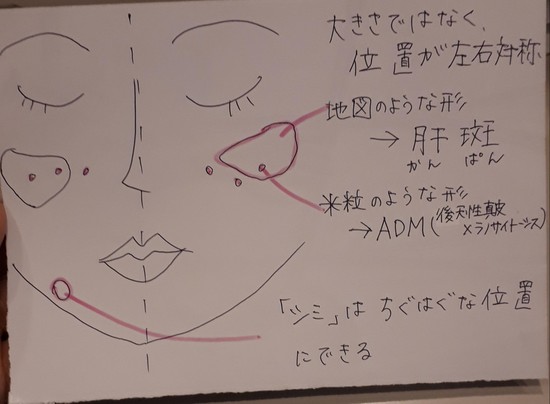 大きさではなく、
位置が左右対称
地図のような形
→肝斑
かん ぱん
米粒のような形
→ADM(後天性真皮
メラノサイトーシス
「シミ」はちぐはぐな位置
にできる